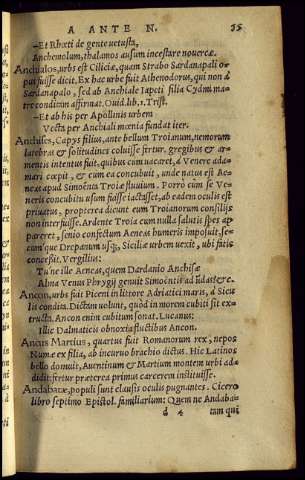 A ANTE N. 55
-Et Rhœti de gente vetusta,
Anchemolum, thalamos ausum incestare nouercæ.
Anchialos, urbs est Ciliciæ, quam Strabo Sardanapali o-
pus fuisse dicit. Ex hac urbe fuit Athenodorus, qui non à
Sardanapalo, sed ab Anchiale Iapeti filia Cydni ma-
tre conditam affirmat. Ouid. lib. 1. Trist.
-Et ab his per Apollinis urbem
Vecta per Anchiali mœnia fundat iter.
Anchises, Capys filius, ante bellum Troianum, nemorum
latebras & solitudines coluisse fertur. gregibus & ar-
mentis intentus fuit, quibus cum vacaret, à Venere ada-
mari cœpit, & cum ea concubuit, unde natus est Ae-
neas apud Simoënta Troiæ fluuium. Porrò cùm se Ve-
neris concubitu usum fuisse iactasset, ab eadem oculis est
priuatus, propterea dicunt eum Troianorum consilijs
non interfuisse. Ardente Troia cum nulla salutis spes ap-
pareret, senio confectum Aeneas humeris imposuit, se-
cumque Drepanum usque, Siciliæ urbem vexit, ubi fatis
concessit. Vergilius:
Tu'ne ille Aeneas, quem Dardanio Anchisæ
Alma Venus Phrygij genuit Simoëntis ad undas? &c.
Ancon, urbs fuit Piceni in littore Adriatici maris, à Sicu
lis condita. Dictam volunt, quòd in morem cubiti sit ex-
tructa. Ancon enim cubitum sonat. Lucanus:
Illic Dalmaticis obnoxia fluctibus Ancon.
Ancus Martius, quartus fuit Romanorum rex, nepos
Numæ ex filia, ab incuruo brachio dictus. Hic Latinos
bello domuit, Auentinum & Martium montem urbi ad-
didit: fertur præterea primus carcerem instituisse.
Andabatæ, populi sunt clausis oculis pugnantes. Cicero
libro septimo Epistol. familiarium: Quem ne Andaba-
d 4 tam qui